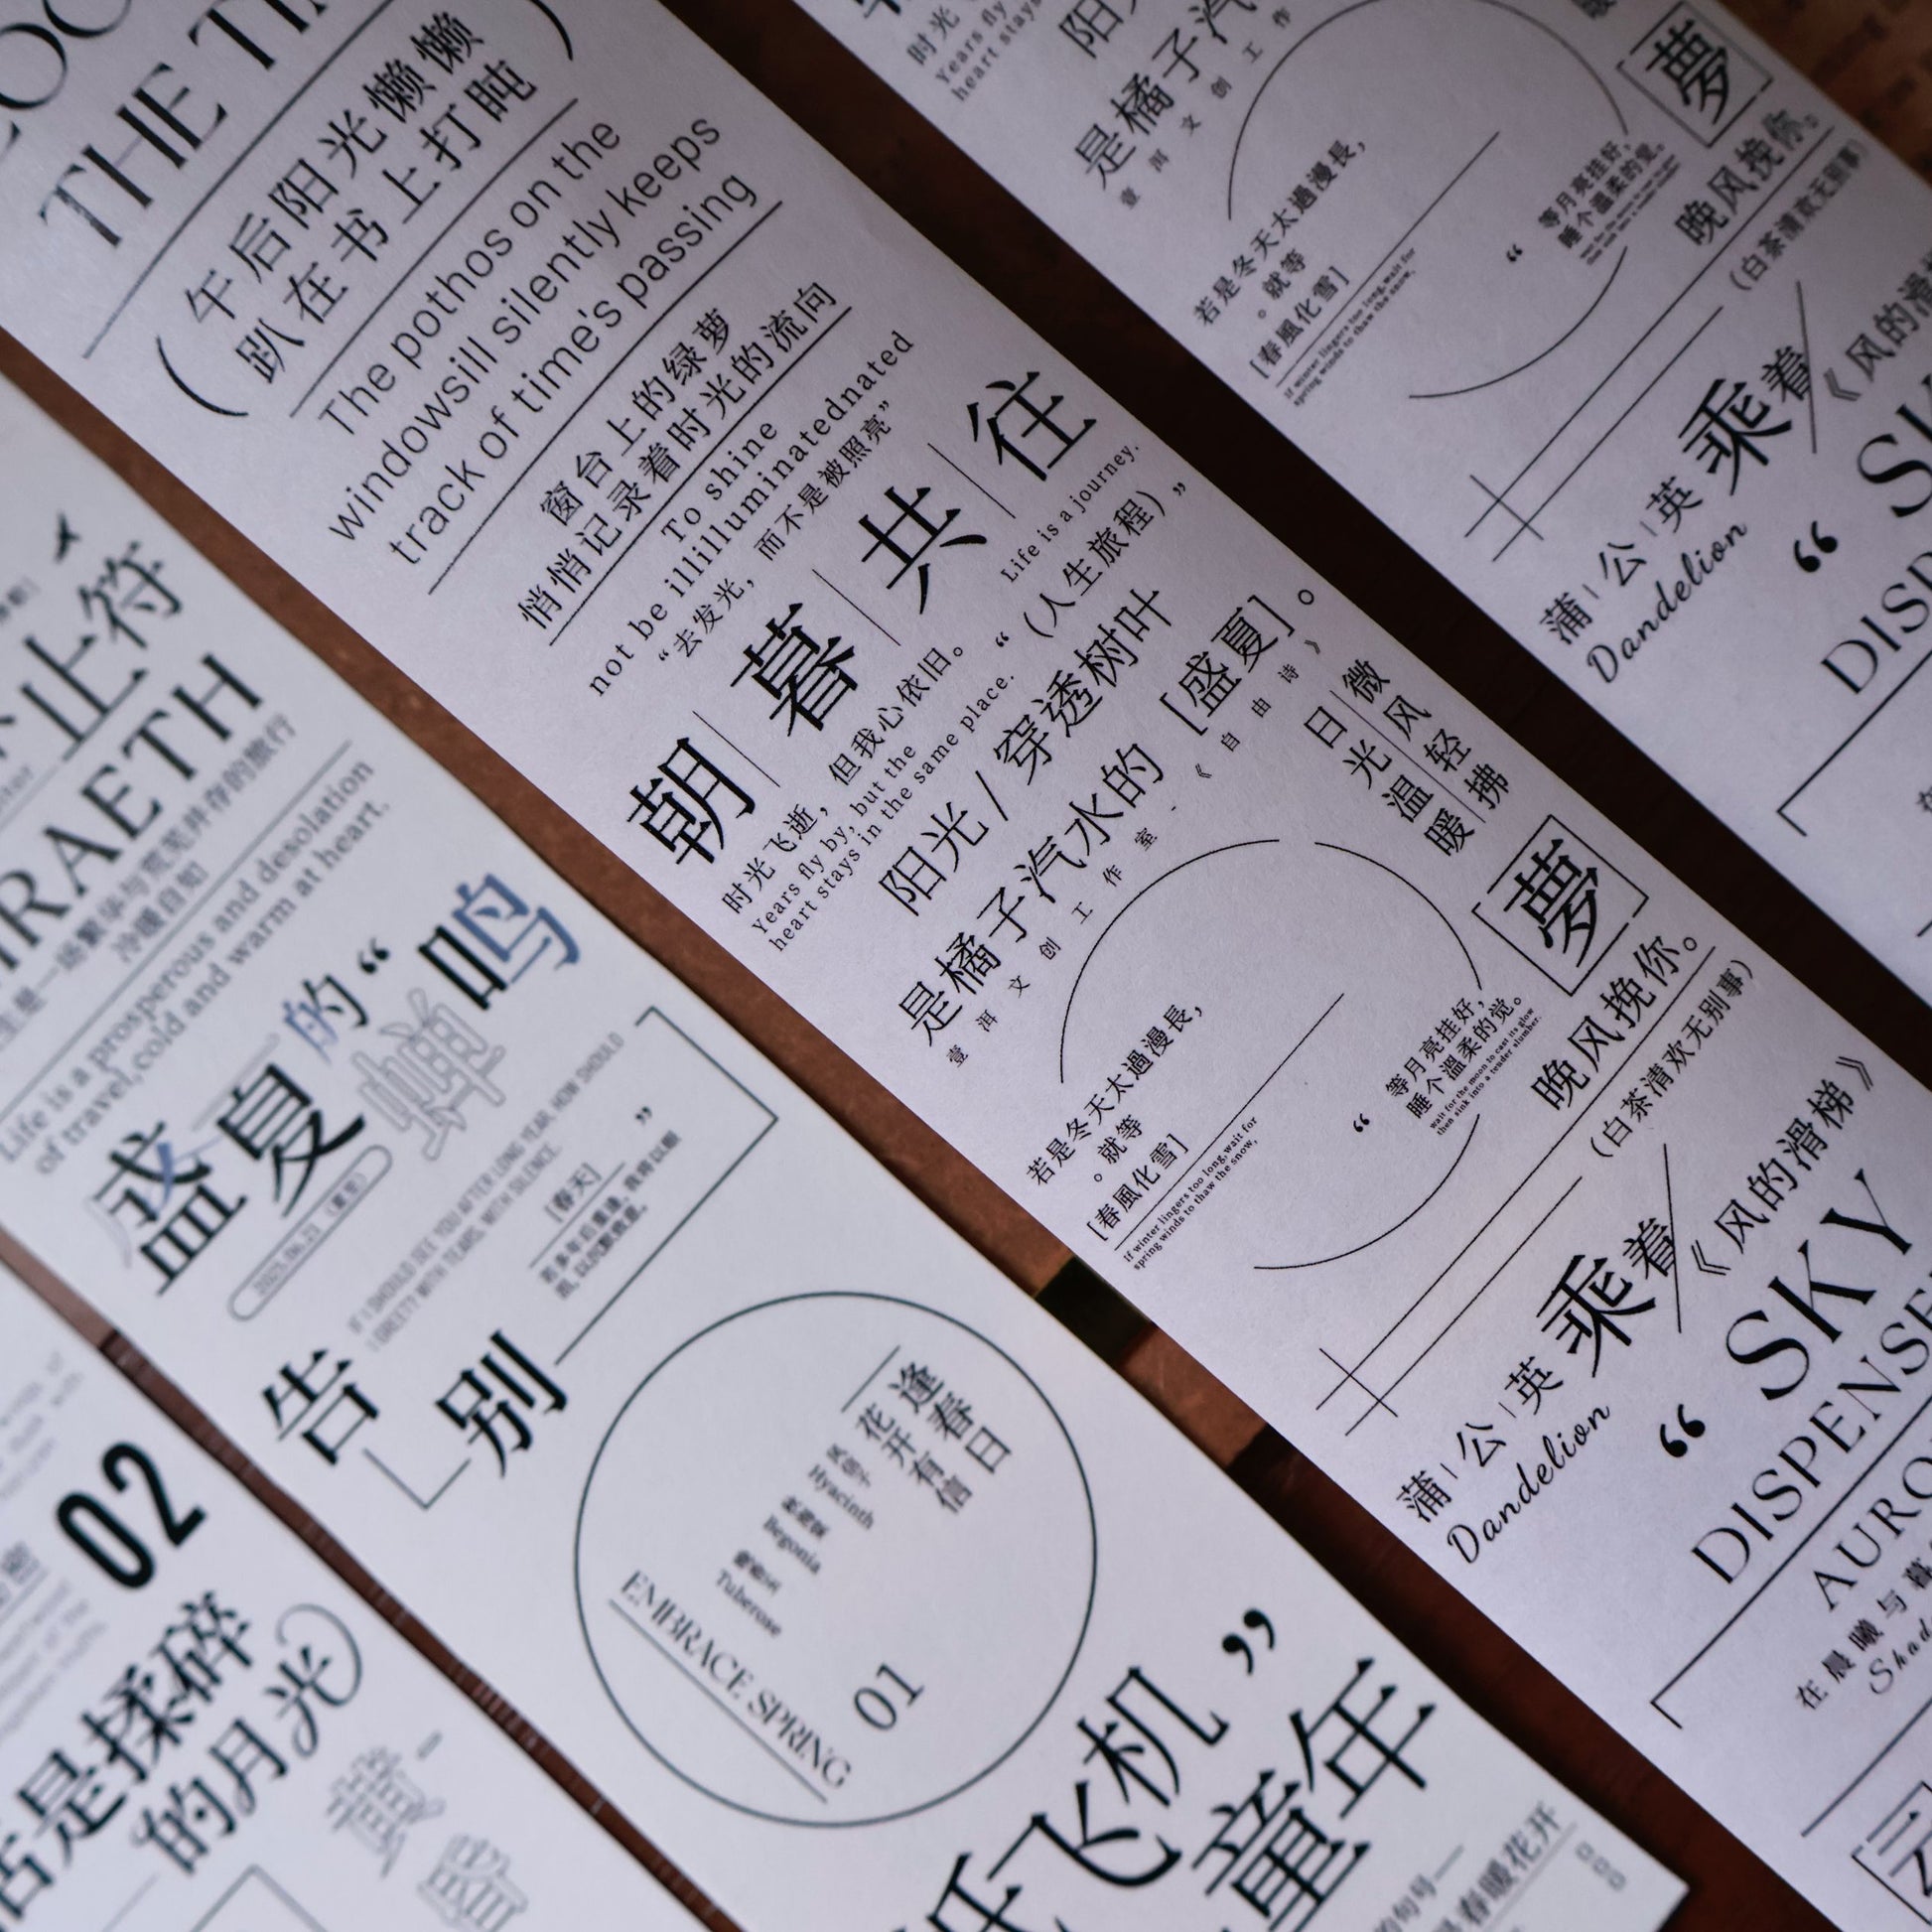 THE
午后阳光懒懒
趴在书上打盹
The pothos on the
windowsill silently keeps
track of time's passing
窗台上的绿萝
悄悄记录着时光的流向
To shine
not be illilluminatednated
“去发光，而不是被照亮”
朝暮共往
Life is a journey.
时光飞逝，但我心依旧。
“（人生旅程）”
Years fly by, but the
heart stays in the same place.
阳光/穿透树叶
是橘子汽水的[盛夏]。
壹洱文创工作室-
《自由诗》
微风轻拂
日光温暖
夢
若是冬天太過漫長，
。就等
[春風化雪]
If winter lingers too long,wait for
spring winds to thaw the snow,
“
等月亮挂好，
睡个温柔的觉。
wait for the moon to cast its glow
then sink into a tender slumber.
晚风挽你。
(白茶清欢无别事)
蒲公英乘着
《风的滑梯》
Dandelion
“ SKY
DISPENSE
AURO
在晨曦与暮
Shad
时光
Years fly
heart stays
是橘子汽
壹洱文创工作
夢
若是冬天太過漫長，
。就等
[春風化雪]
If winter lingers too long,wait for
spring winds to thaw the snow,
“
等月亮挂好，
睡个温柔的觉。
晚风挽你。
(白茶清欢无别事)
蒲公英乘着
《风的滑
Dandelion
“
DISP
止符
RAETH
一场繁华与荒芜并存的旅行
冷暖自知
Life is a prosperous and desolation
of travel,cold and warm at heart.
盛夏的“蝉鸣
2025.06.21（夏至）
IF I SHOULD SEE YOU AFTER LONG YEAR, HOW SHOULD
I GREET? WITH TEARS, WITH SILENCE.
”
[春天]
若多年后重逢，我将以何
贺，以沉默致意。
告别
逢春日
花开有信
风信子
Hyacinth
秋海棠
Begonia
晚香玉
Tuberose
EMBRACE SPRING
01
纸飞机”
童年
春暖花开
02
是揉碎
的月光
黄昏